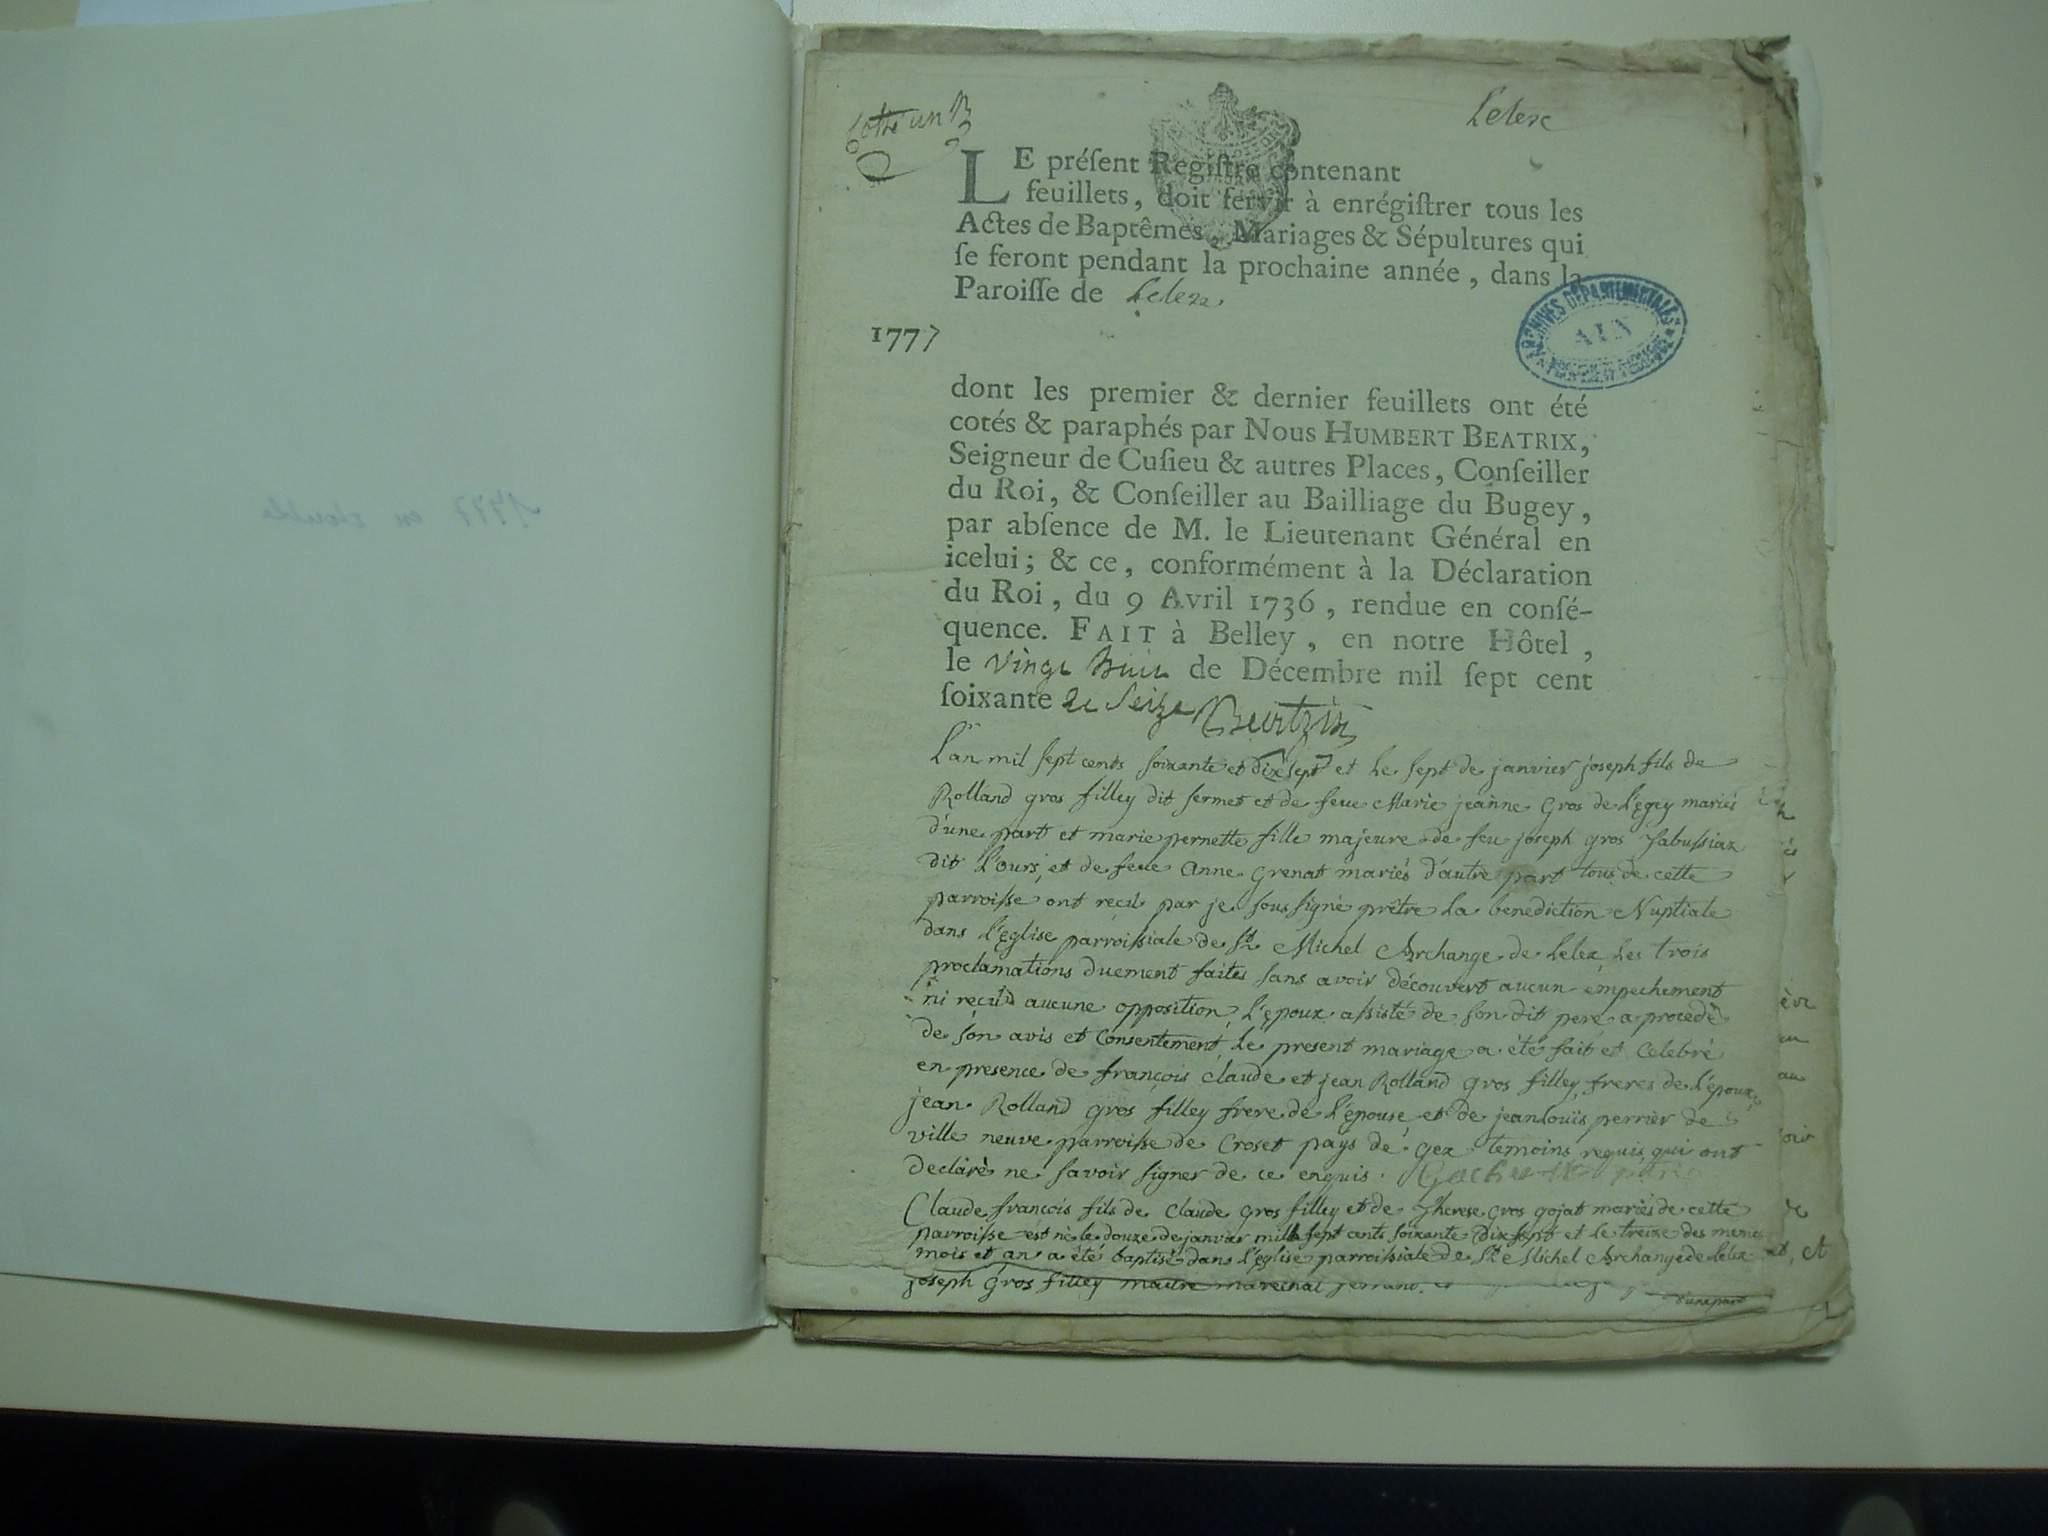 1777 en double
Cotté un
Lelex
LE préſent Regiſtre contenant
feuillets, doit ſervir à enrégiſtrer tous les
Actes de Baptêmes, Mariages & Sépultures qui
ſe feront pendant la prochaine année, dans la
Paroiſſe de Lelex
1777
ARCHIVES DÉPARTEMENTALES
AIN
dont les premier & dernier feuillets ont été
cotés & paraphés par Nous HUMBERT BEATRIX,
Seigneur de Cuſieu & autres Places, Conſeiller
du Roi, & Conſeiller au Bailliage du Bugey,
par abſence de M. le Lieutenant Général en
icelui; & ce, conformément à la Déclaration
du Roi, du 9 Avril 1736, rendue en conſé-
quence. FAIT à Belley, en notre Hôtel,
le vingt huit de Décembre mil ſept cent
ſoixante et seize
L'an mil sept cents soixante et dix sept et le sept de janvier joseph fils de
Rolland gros filley dit sermet et de feue Marie jeanne Gros de l'egey mariés
d'une part et marie pernette fille majeure de feu joseph gros
dit l'ours, et de feue Anne Grenat mariés d'autre part tous de cette
parroisse ont reçu par je sous signé prêtre la benediction Nuptiale
dans l'église parroissiale de St Michel Archange de Lelex, les trois
proclamations duement faites sans avoir découvert aucun empechement
ni reçu aucune opposition, l'epoux assisté de son dit pere a procedé
de son avis et consentement, le present mariage a été fait et celebré
en presence de françois claude et jean Rolland gros filley, freres de l'époux,
jean Rolland gros filley frere de l'épouse, et de jean louïs perrier de
ville neuve parroisse de Croset pays de Gex temoins requis qui ont
declaré ne savoir signer de ce enquis.
Claude françois fils de claude gros filley et de Therese gros gojat mariés de cette
parroisse est né le douze de janvier mill sept cents soixante dix sept et le treize des meme
mois et an a été baptisé dans l'église parroissiale de St Michel Archange de Lelex
joseph Gros filley maitre marechal